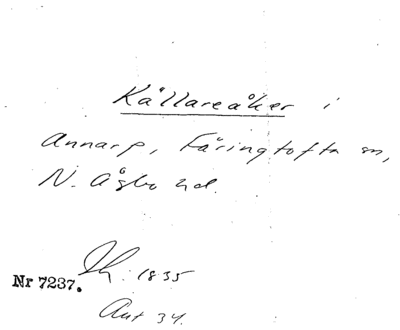 Källareåker i
Annarp, Färingtofta sn,
N. Åsbo hd.
1835
Nr 7237.
Aut 34.